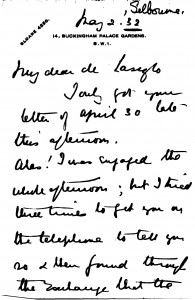 Selbourne.
May 2. 32
SLOANE 4554.
14, BUCKINGHAM PALACE GARDENS.
S.W.1.
My dear de Laszlo
I only got your
letter of april 30 late
this afternoon.
Alas! I was engaged the
whole afternoon; but I tried
three times to get you on
the telephone to tell you
so & then found through
the Exchange that the